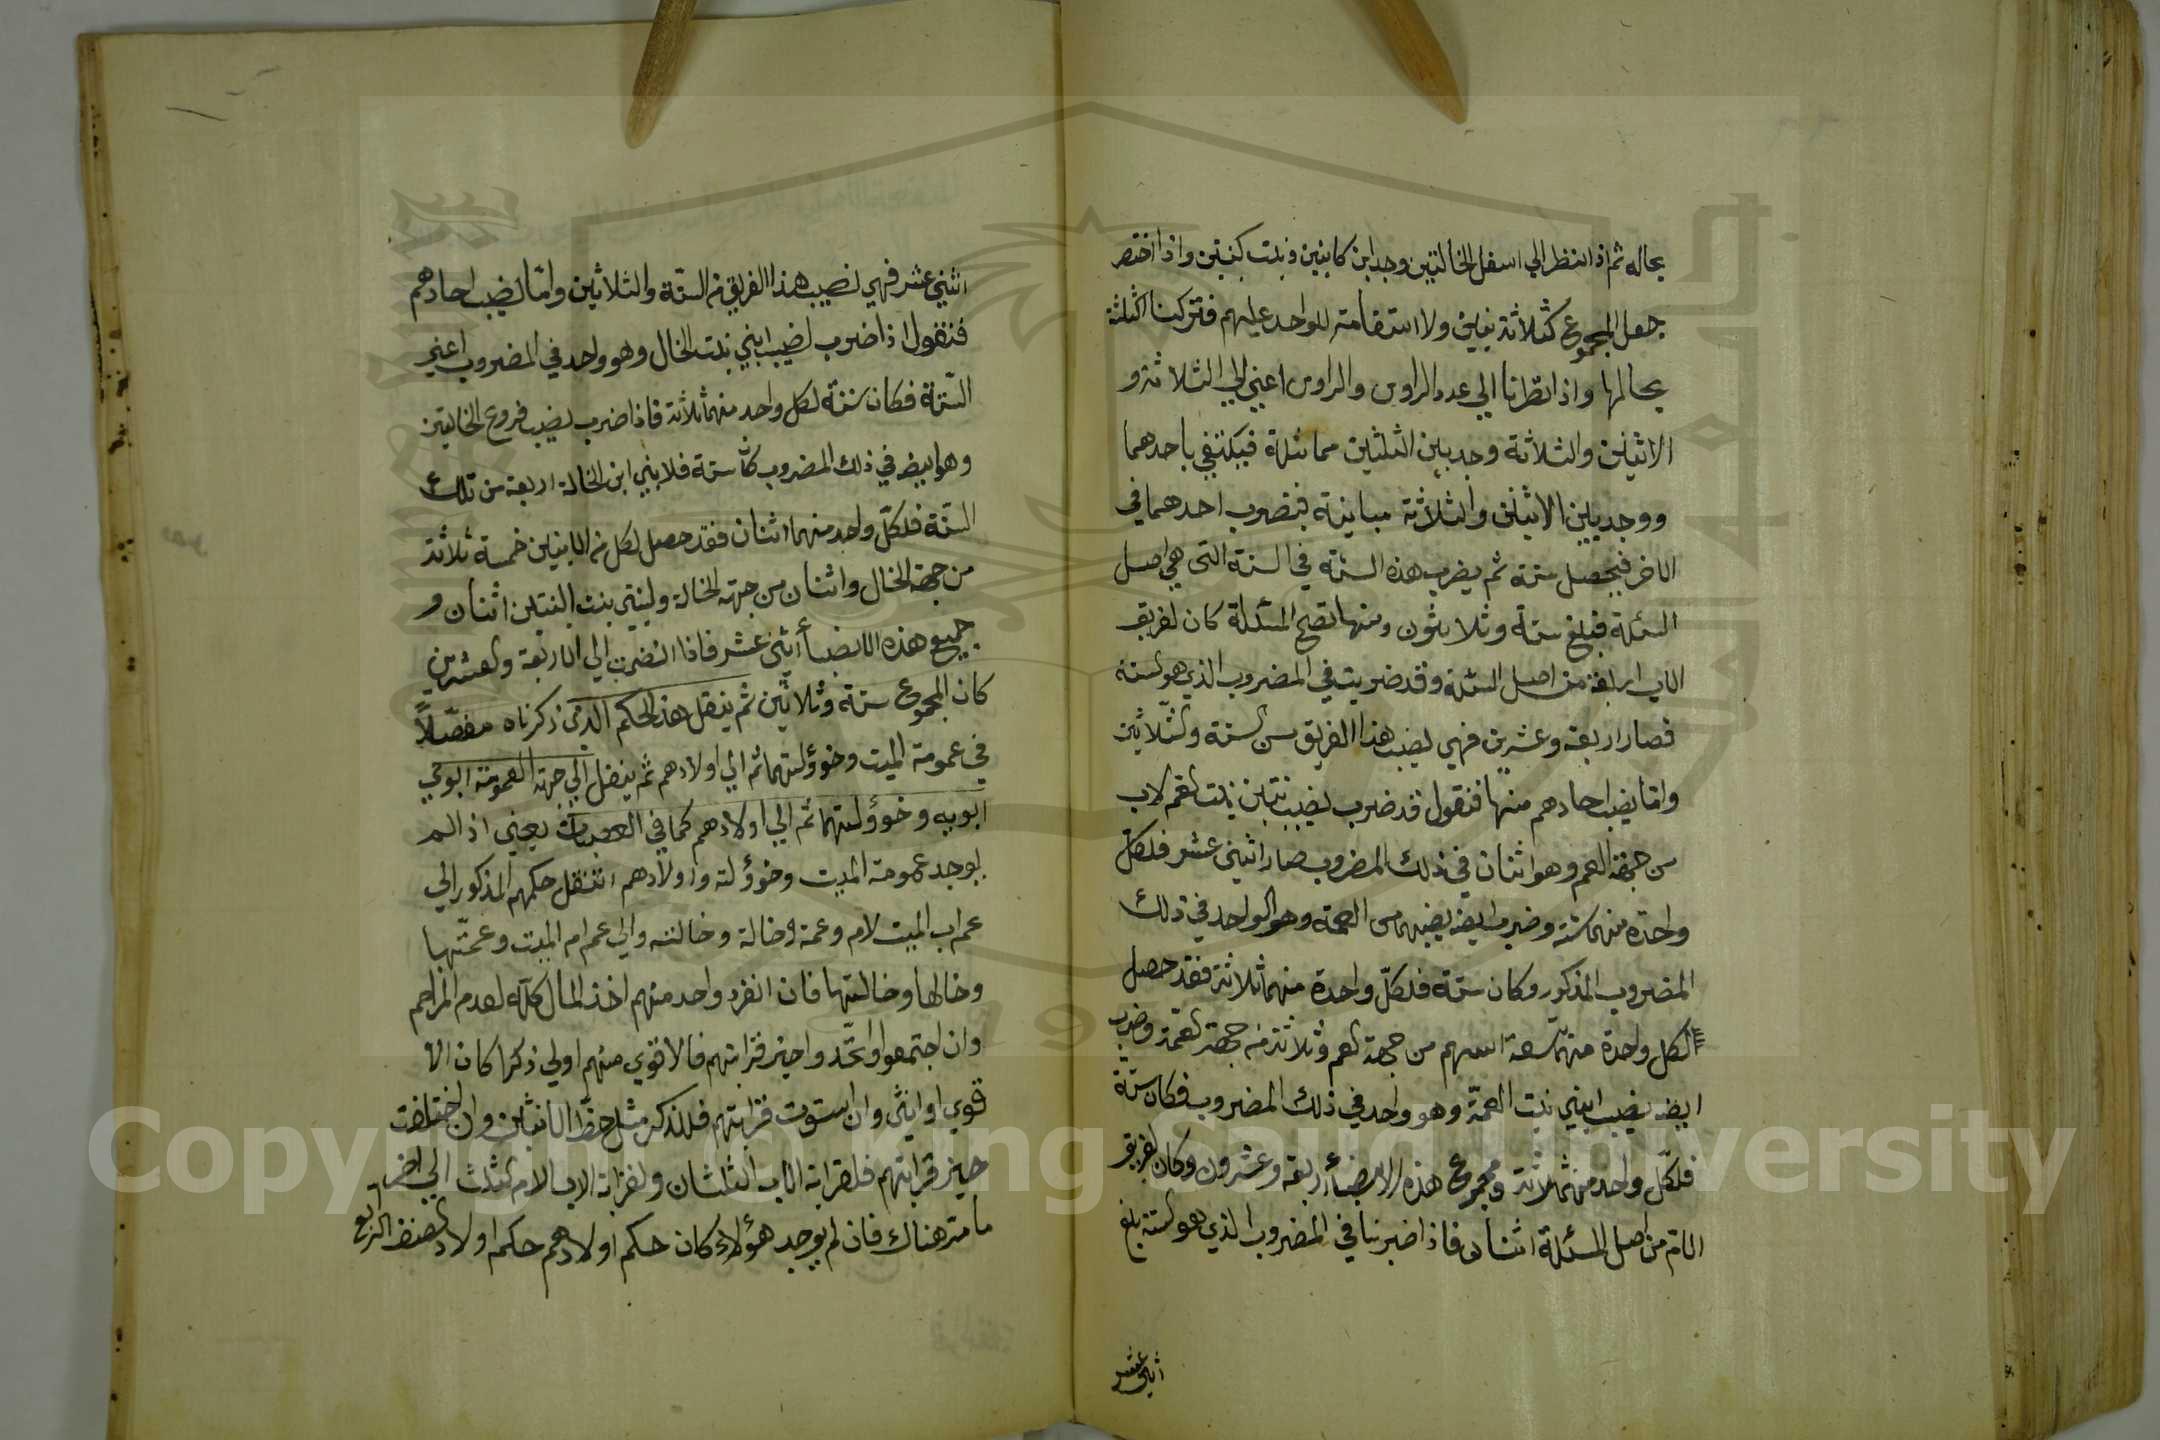 بحاله ثم اذا نظر الي اسفل الخالتين وجد ابن كابنين وبنت كبنتين واذا اختصر
جعل المجموع كثلاثة بنين ولا استقامة للواحد عليهم فتركنا الثلثة
بحالها واذا نظرنا الي عدد الروس والروس اعني الي الثلاثة و
الاثنين والثلاثة وجد بين الثلثين مماثلة فيكتفي باحدهما
ووجد بين الاثنين والثلاثة مباينة فنضرب احدهما في
الاخر فيحصل ستة ثم يضرب هذه الستة في الستة التي هي اصل
المسئلة فبلغ ستة وثلاثون ومنها تصح المسئلة كان لفريق
الاب اربعة من اصل المسئلة وقد ضربت في المضروب الذي هو لستة
فصار اربعة وعشرين فهي نصيب هذا الفريق من الستة والثلاثين
واما نصيب احادهم منها فنقول قد ضرب نصيب بنتين بنت لعم لاب
من جهة العم وهو اثنان في ذلك المضروب صار اثني عشر فلكل
واحدة منهما ستة وضرب ايضه نصيبهم من العمة وهو الواحد في ذلك
المضروب المذكور وكان ستة فلكل واحدة منهما ثلاثة فقد حصل
لكل واحدة منهما تسعة اسهم من جهة لعم وثلاثة من جهة لعمة وضرب
ايضه نصيب ابني بنت العمة وهو واحد في ذلك المضروب فكان ستة
فلكل واحد منهما ثلاثة ومجموع هذه الانصباء اربعة وعشرون وكان لفريق
الام من اصل المسئلة اثنان فاذا ضربنا في المضروب الذي هو لستة بلغ
اثني عشر
اثني عشر فهي نصيب هذا الفريق من الستة والثلاثين واما نصيب احادهم
فنقول اذا ضرب نصيب ابني بنت الخال وهو واحد في المضروب اعني
الستة فكان ستة لكل واحد منهما ثلاثة فاذا ضرب نصيب فروع الخالتين
وهو ايضه في ذلك المضروب كان ستة فلابني ابن الخالة اربعة من تلك
الستة فلكل واحد منهما اثنان فقد حصل لكل من الابنين خمسة ثلاثة
من جهة الخال واثنان من جهة الخالة ولبنتي بنت البنتين اثنان و
جميع هذه الانصباء اثني عشر فاذا انضمت الي الاربعة والعشرين
كان المجموع ستة وثلاثين ثم ينتقل هذ الحكم الذي ذكرناه مفصّلاً
في عمومة الميت وخؤولتهما ثم الي اولادهم ثم ينتقل الي جهة العمومة ابوي
ابويه وخؤولتهما ثم الي اولادهم كما في العصبات يعني اذا لم
يوجد عمومة الميت وخؤولته واولادهم انتقل حكمهم المذكور الي
عم اب الميت لام وعمة وخالة وخالته والي عم ام الميت وعمتها
وخالها وخالتها فان انفرد واحد منهم اخذ المال كله لعدم المزاحم
وان اجتمعوا واتحد واحيز قرابتهم فالاقوي منهم اولي ذكرا كان الا
قوي او انثى وان استوت قرابتهم فللذكر مثل حظ الانثيين وان اختلفت
حيز قرابتهم فلقرابة الاب الثلثان ولقرابة الاب الام لثلث الي اخر
ما مر هناك فان لم يوجد هؤلاء كان حكم اولادهم حكم اولاد لصنف الرابع
Copyright © King Saud University